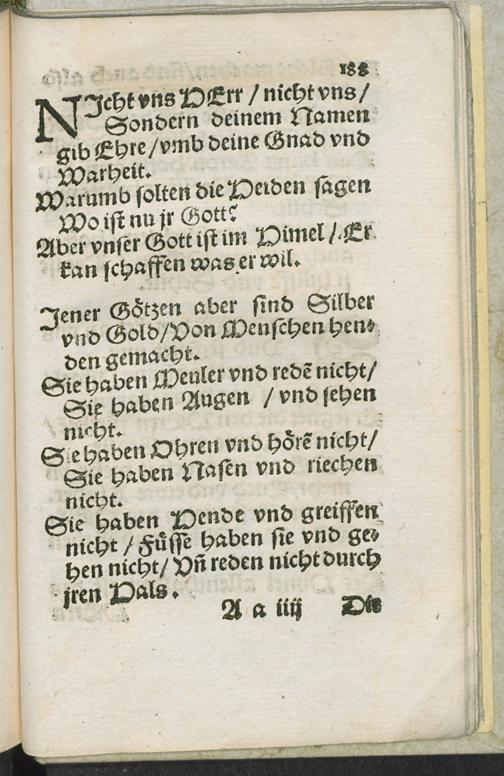 188
NIcht vns HErr / nicht vns /
Sondern deinem Namen
gib Ehre / vmb deine Gnad vnd
Warheit.
Warumb solten die Heiden sagen
Wo ist nu jr Gott?
Aber vnser Gott ist im Himel / Er
kan schaffen was er wil.
Jener Götzen aber sind Silber
vnd Gold / Von Menschen hen⸗
den gemacht.
Sie haben Meuler vnd redē nicht /
Sie haben Augen / vnd sehen
nicht.
Sie haben Ohren vnd hörē nicht /
Sie haben Nasen vnd riechen
nicht.
Sie haben Hende vnd greiffen
nicht / Füsse haben sie vnd ge⸗
hen nicht / Vñ reden nicht durch
jren Hals.
A a iiij Die